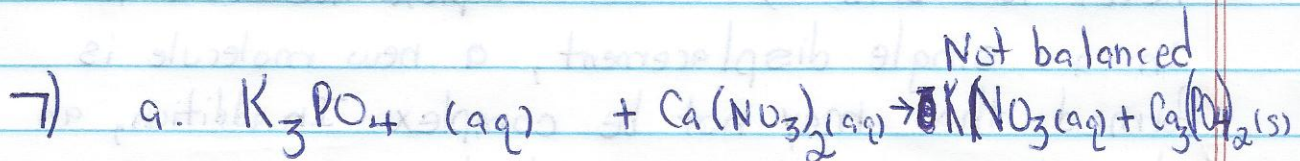 Not balanced
7) a. K₃PO₄ (aq) + Ca(NO₃)₂(aq) → KNO₃(aq) + Ca₃(PO₄)₂(s)